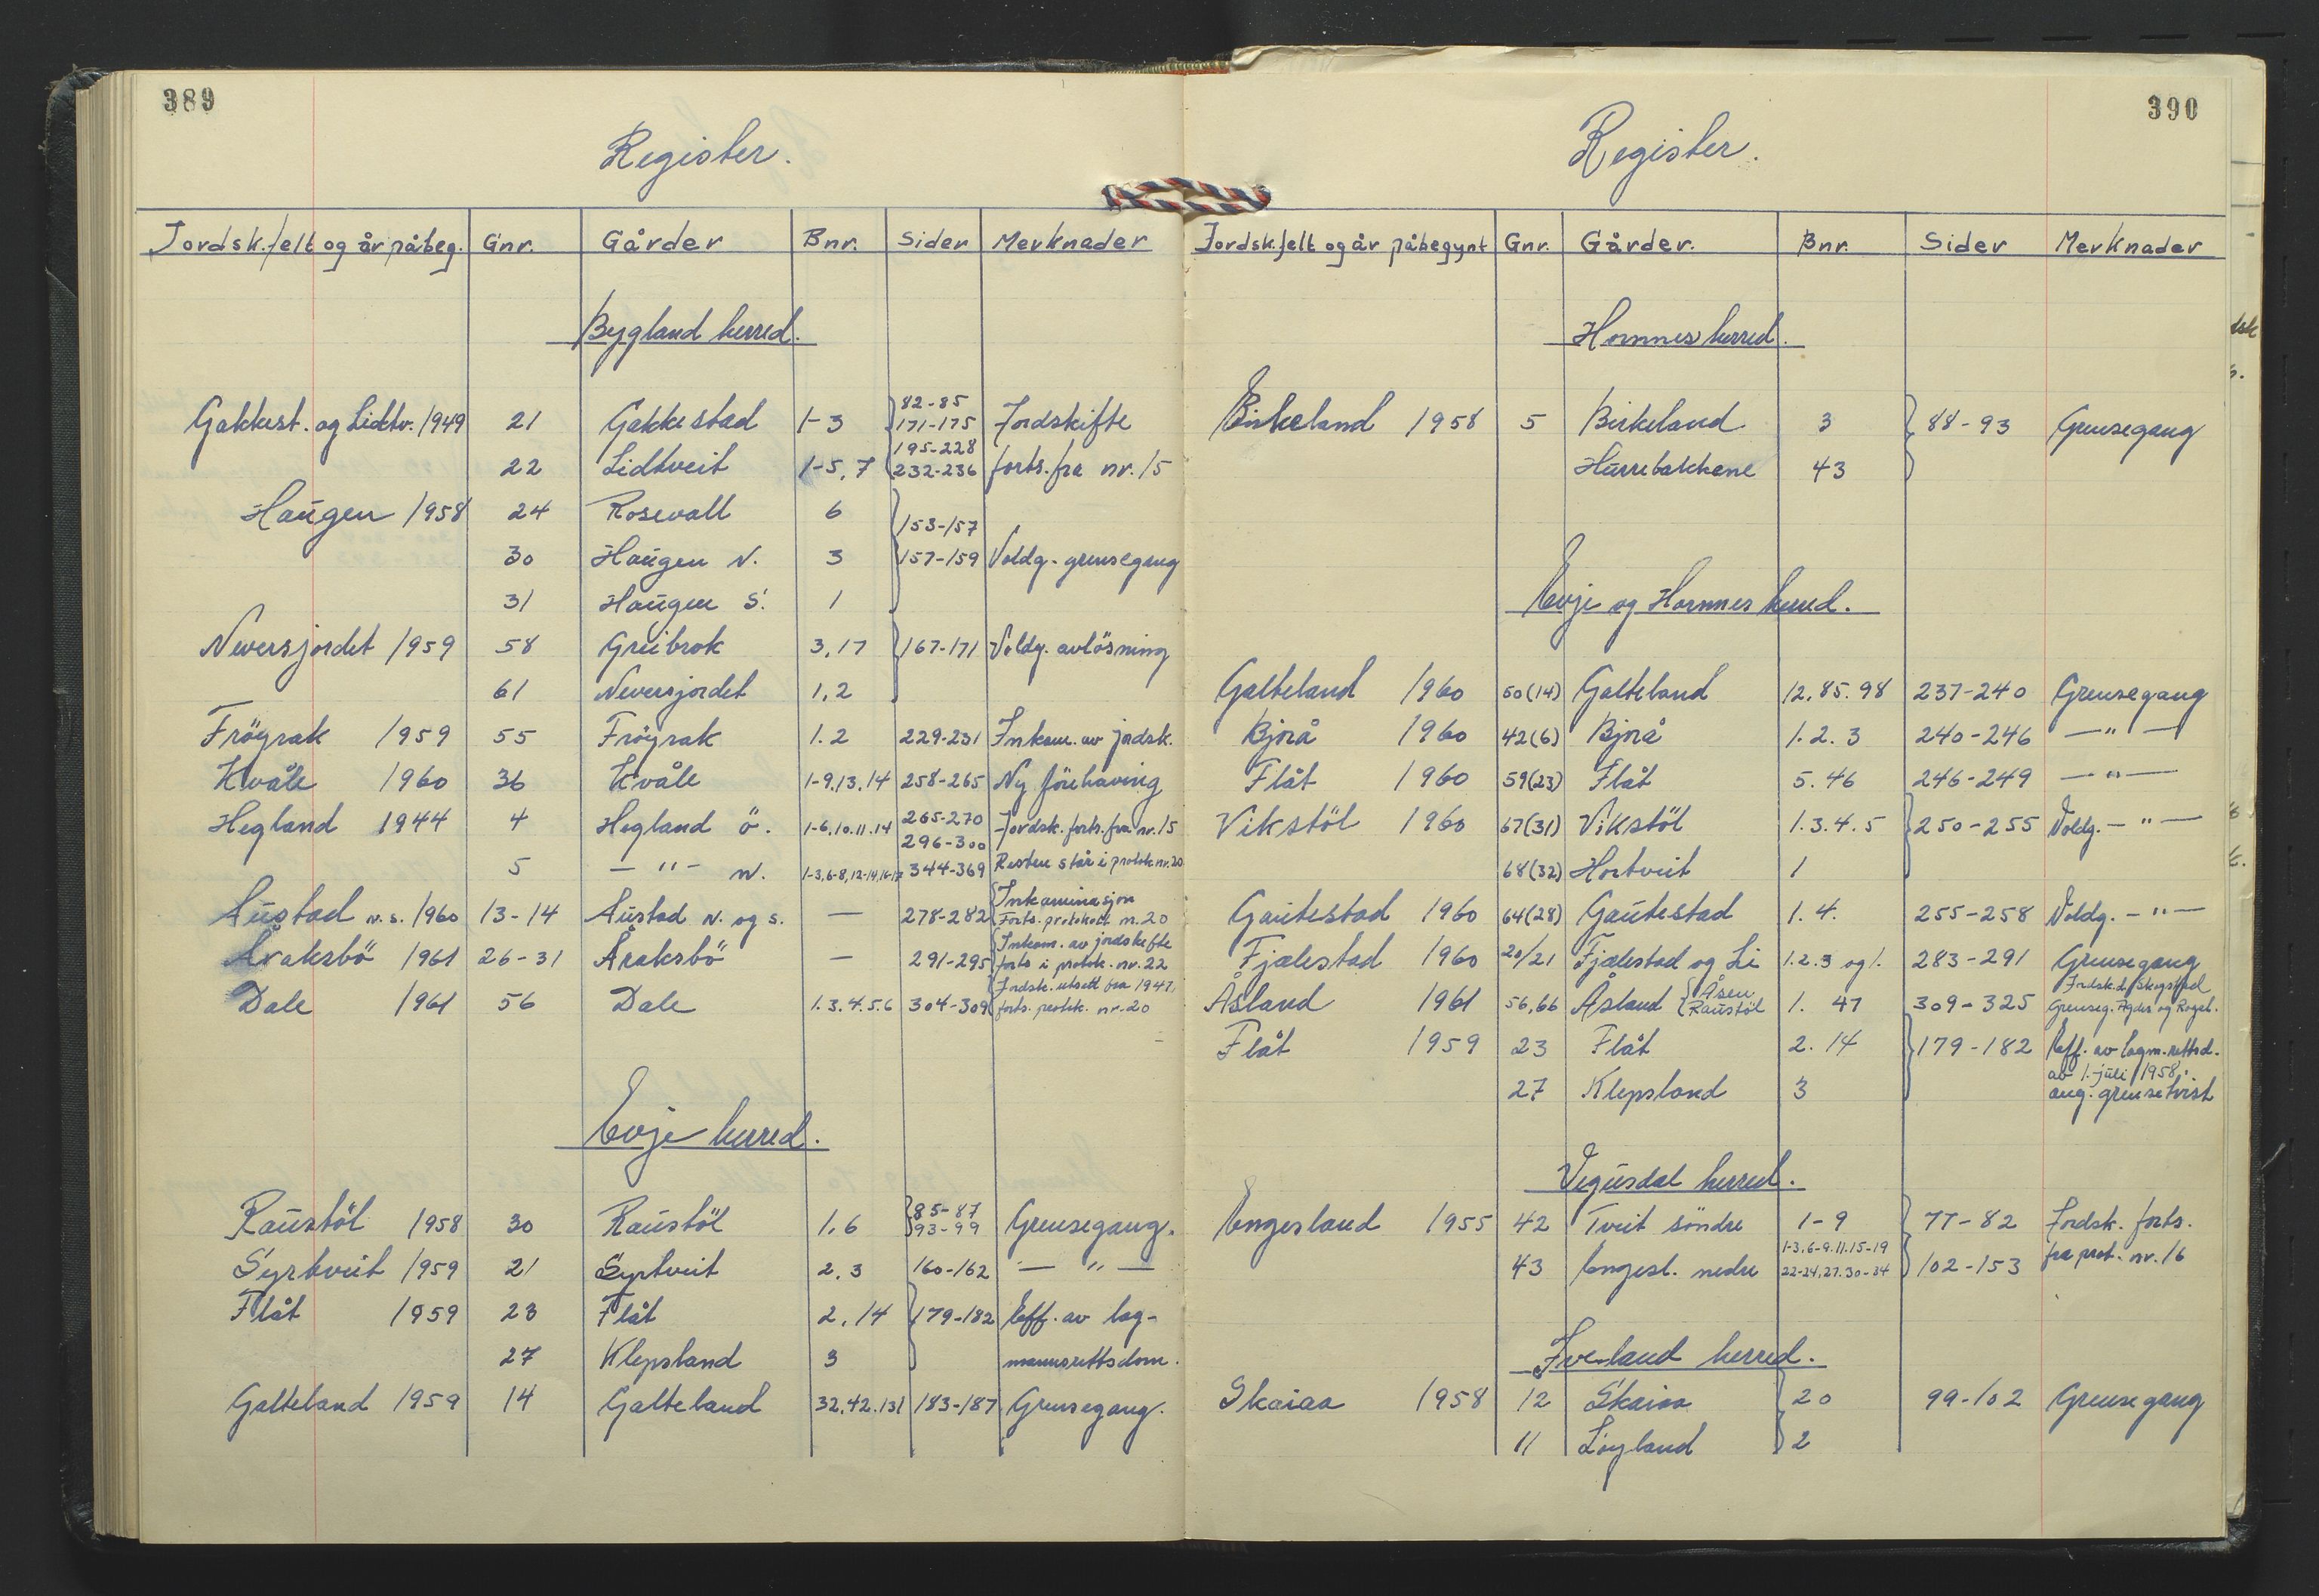 389
Register.
Jordsk.felt og år påbeg. Gnr. Gårder Bnr. Sider Merknader
Bygland herred.
82-85
Gakkest. og Lidtv. 1949 21 Gakkestad 1-3 171-175 Jordskifte
195-228
22 Lidtveit 1-5, 7 232-236 forts. fra nr. 15
Haugen 1958 24 Rosevall 6 153-157
30 Haugen N. 3 157-159 Voldg. grensegang
31 Haugen S. 1
Neversjordet 1959 58 Greibrok 3, 17 167-171 Voldg. avlösning
61 Neversjordet 1, 2
Fröyrak 1959 55 Fröyrak 1. 2 229-231 Inkom. av jordsk.
Kvåle 1960 36 Kvåle 1-9, 13, 14 258-265 Ny förehaving
Hegland 1944 4 Hegland ö. 1-6, 10. 11. 14 265-270 Jordsk. forts. fra nr. 15
296-300
5 — " — n. 1-3, 6-8, 12-14, 16-17 344-369 Resten står i protok nr. 20
Inkaminasjon
Austad n. s. 1960 13-14 Austad n. og s. — 278-282 Forts. protokoll n. 20
Inkom. av jordskifte
Åraksbö 1961 26-31 Åraksbö — 291-295 forts i protok. nr. 22
Jordsk. utsett fra 1947,
Dale 1961 56 Dale 1. 3. 4. 5. 6 304-309 forts. protok. nr. 20
Evje herred.
85-87
Raustöl 1958 30 Raustöl 1, 6 93-99 Grensegang.
Syrtveit 1959 21 Syrtveit 2, 3 160-162 — " —
Flåt 1959 23 Flåt 2, 14 179-182 Eff. av lag-
27 Klepsland 3 mannsrettsdom.
Galteland 1959 14 Galteland 32, 42. 131 183-187 Grensegang.
390
Register.
Jordsk.felt og år påbegynt Gnr. Gårder. Bnr. Sider Merknader
Hornnes herred.
Birkeland 1958 5 Birkeland 3 88-93 Grensegang
Hurrebakkene 43
Evje og Hornnes herred.
Galteland 1960 50(14) Galteland 12, 85. 98 237-240 Grensegang
Bjorå 1960 42(6) Bjorå 1. 2. 3 240-246 — " —
Flåt 1960 59(23) Flåt 5. 46 246-249 — " —
Vikstöl 1960 67(31) Vikstöl 1. 3. 4. 5 250-255 Voldg. — " —
68(32) Hortveit 1
Gautestad 1960 64(28) Gautestad 1. 4. 255-258 Voldg. — " —
Fjælestad 1960 20/21 Fjælestad og Li 1. 2. 3 og 1. 283-291 Grensegang
Åsen Jordsk. d.
Åsland 1961 56, 66 Åsland Raustöl 1. 47 309-325 Grenseg. Agder og Rogal.
Flåt 1959 23 Flåt 2. 14 179-182 Eff. av lagm. rettsd.
av 1. juli 1958.
27 Klepsland 3 ang. grensetvist
Vegusdal herred.
Engesland 1955 42 Tveit söndre 1-9 77-82 Jordsk. forts.
1-3, 6-9. 11. 15-19
43 Engesl. nedre 22-24, 27. 30-34 102-153 fra prot. nr. 16
Iveland herred.
Skaiaa 1958 12 Skaiaa 20 99-102 Grensegang
11 Löyland 2